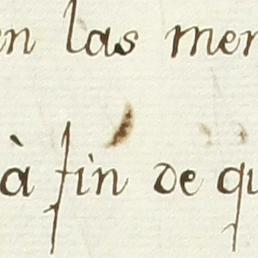 en las men
à fin de qu